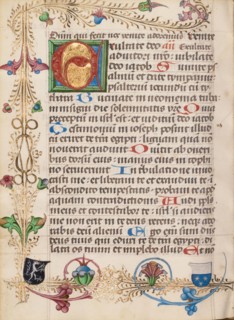 fecit nos venite adoremus Venite
Exultate deo Exultate
adiutori nro : iubilate
deo iacob Sumite ps
almum et date tympanum
psalterium iucundu cu cy
thara Bucinate in neomenia tuba : in
insigni die solemnitatis vre Quia
preceptu in isrl est : et iudiciu deo iacob
Testimoniu in ioseph posuit illud
cu exiret de terra egipti : linguam qua no
noverat audivit Divertit ab oneri
bus dorsu eius : manus eius in coph
no servierunt In tribulatione invo
casti me : et liberavi te : exaudivi te i
abscondito tempestatis : probavi te apd
aquam contradictionis Audi pplus
meus et contestabor te : isrl si audieris
me non erit in te deus recens : nec ado
rabis deu alienu Ego eni sum dns
deus tuus qui eduxi te de terra egypti : di
lata os tuum et implebo illud Et no